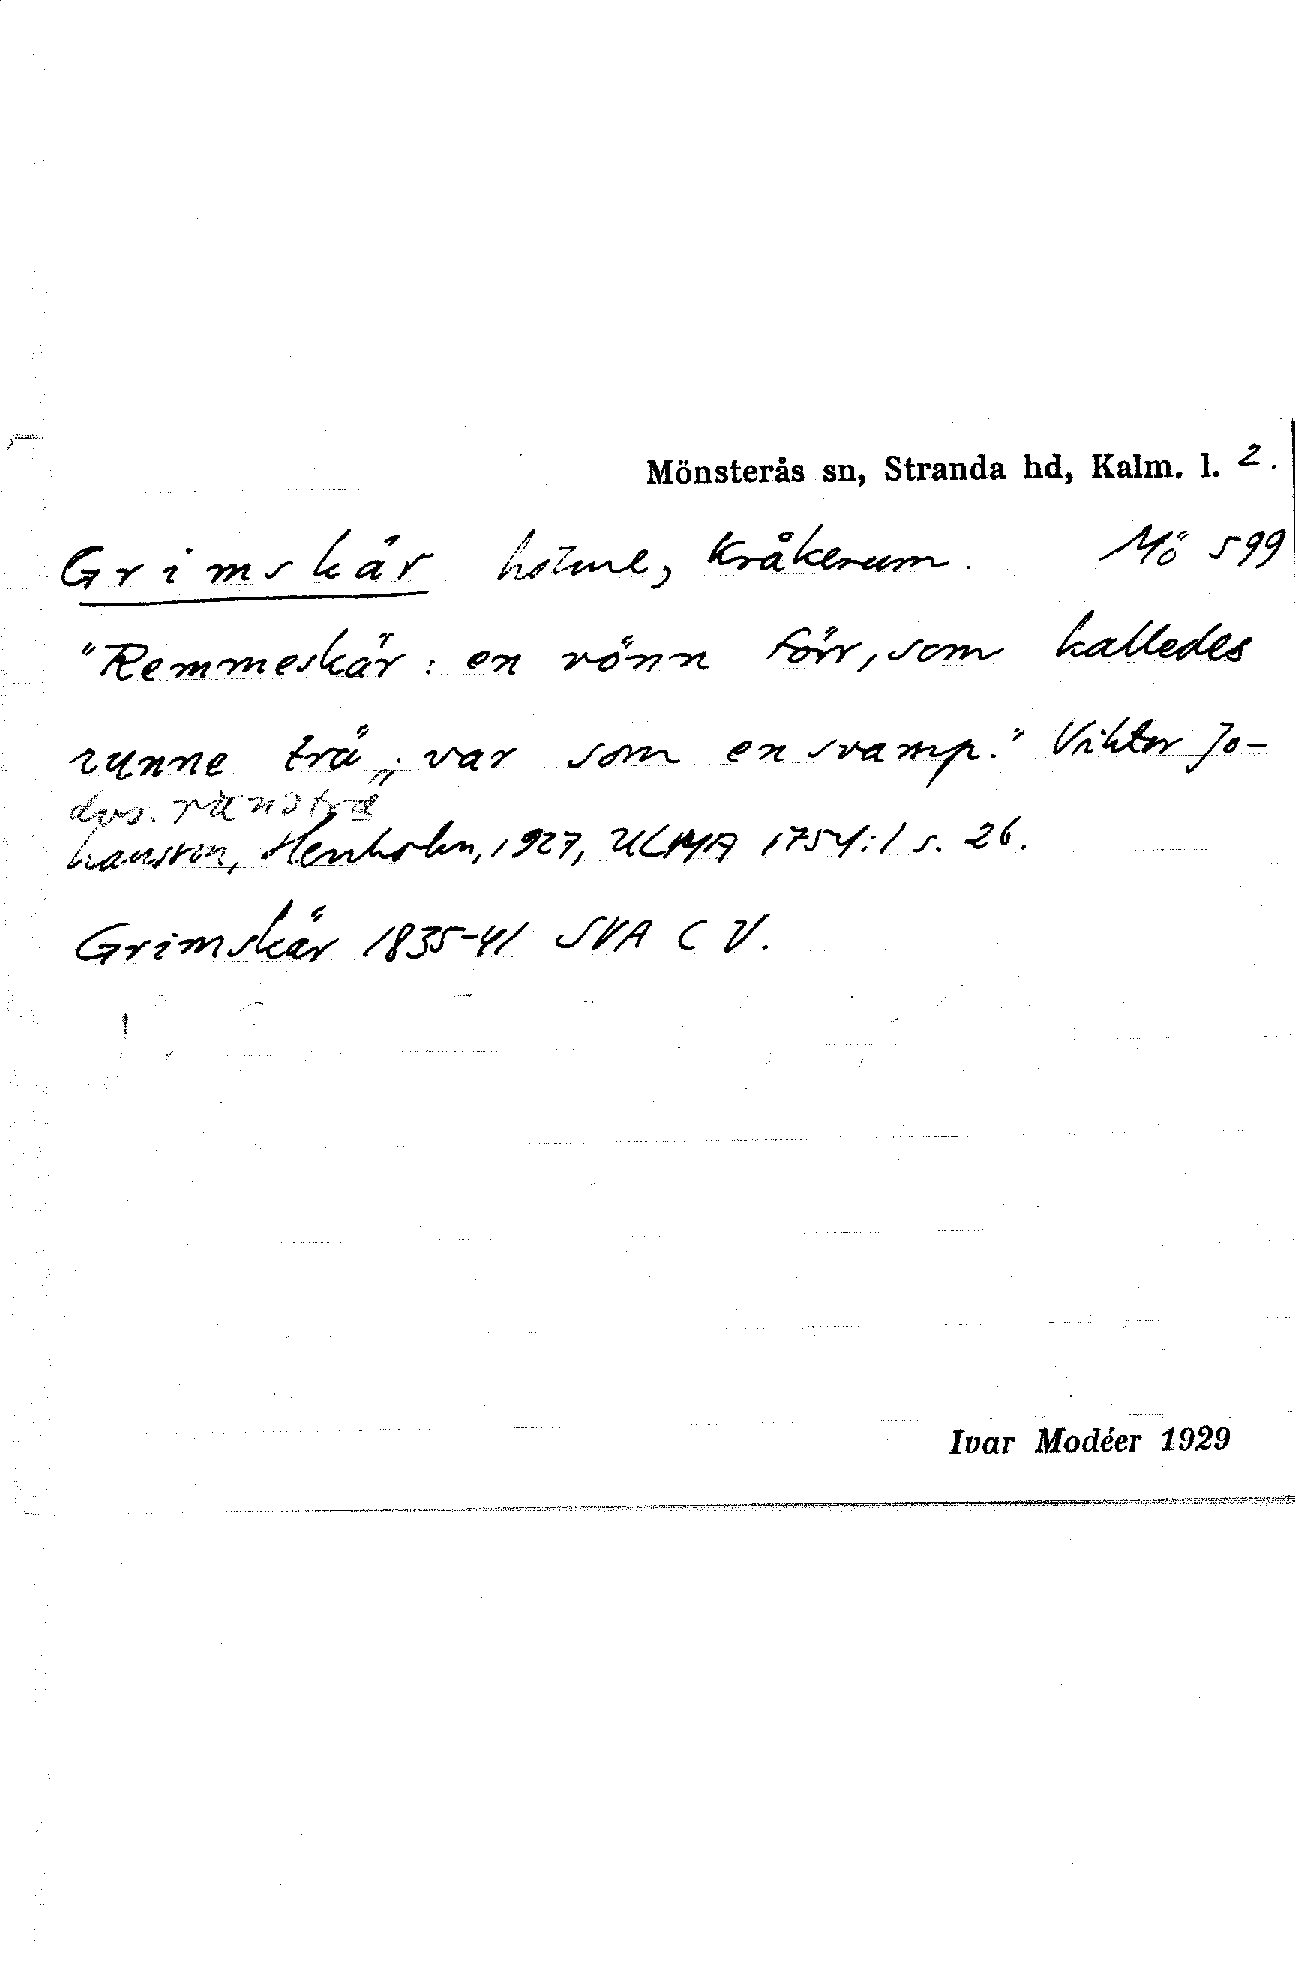 Mönsterås sn, Stranda hd, Kalm. l. 2.
Grimskär holme, Kråkerum. Mö 599
"Remmeskär: en rönn förr, som kalledes
runne trä, var som en svamp." Viktor Jo-
dvs.
hansson, Henholm, 1927, ULMA 1754:1 s. 26.
Grimskär 1835-41 SVA C V.
Ivar Modéer 1929